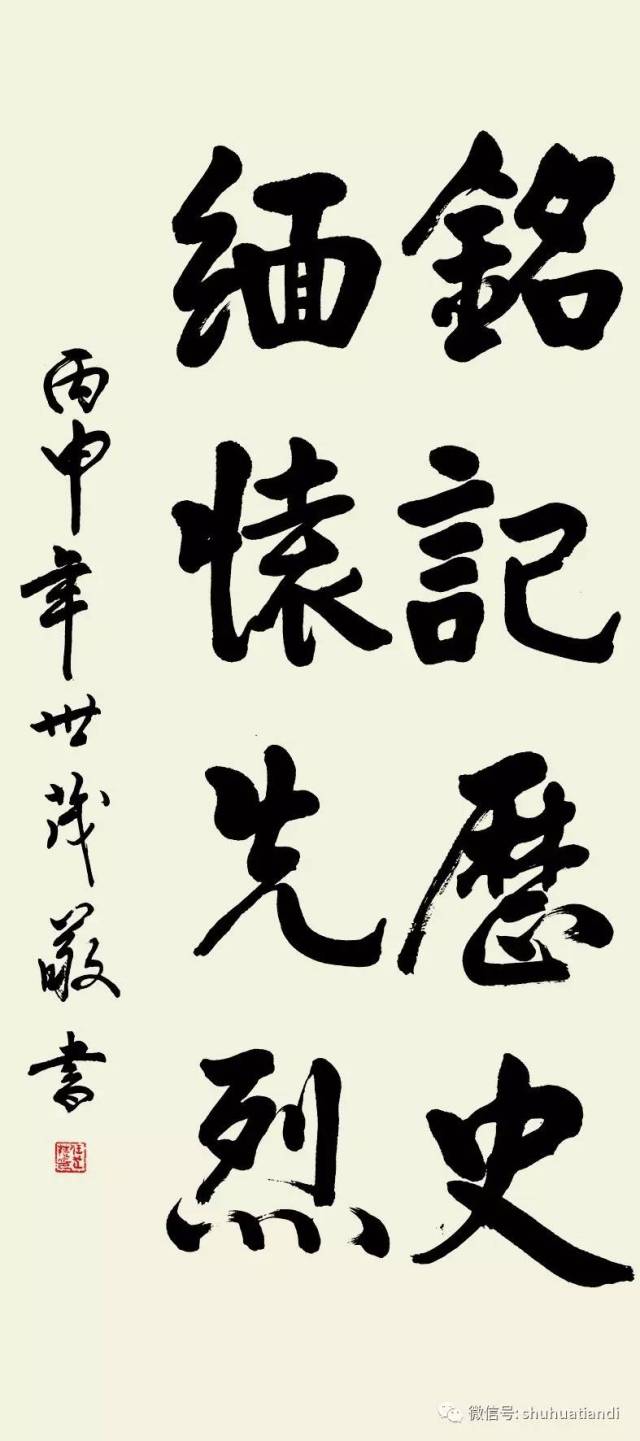 銘記歷史
緬懷先烈
丙申年世茂敬書
微信号: shuhuatiandi